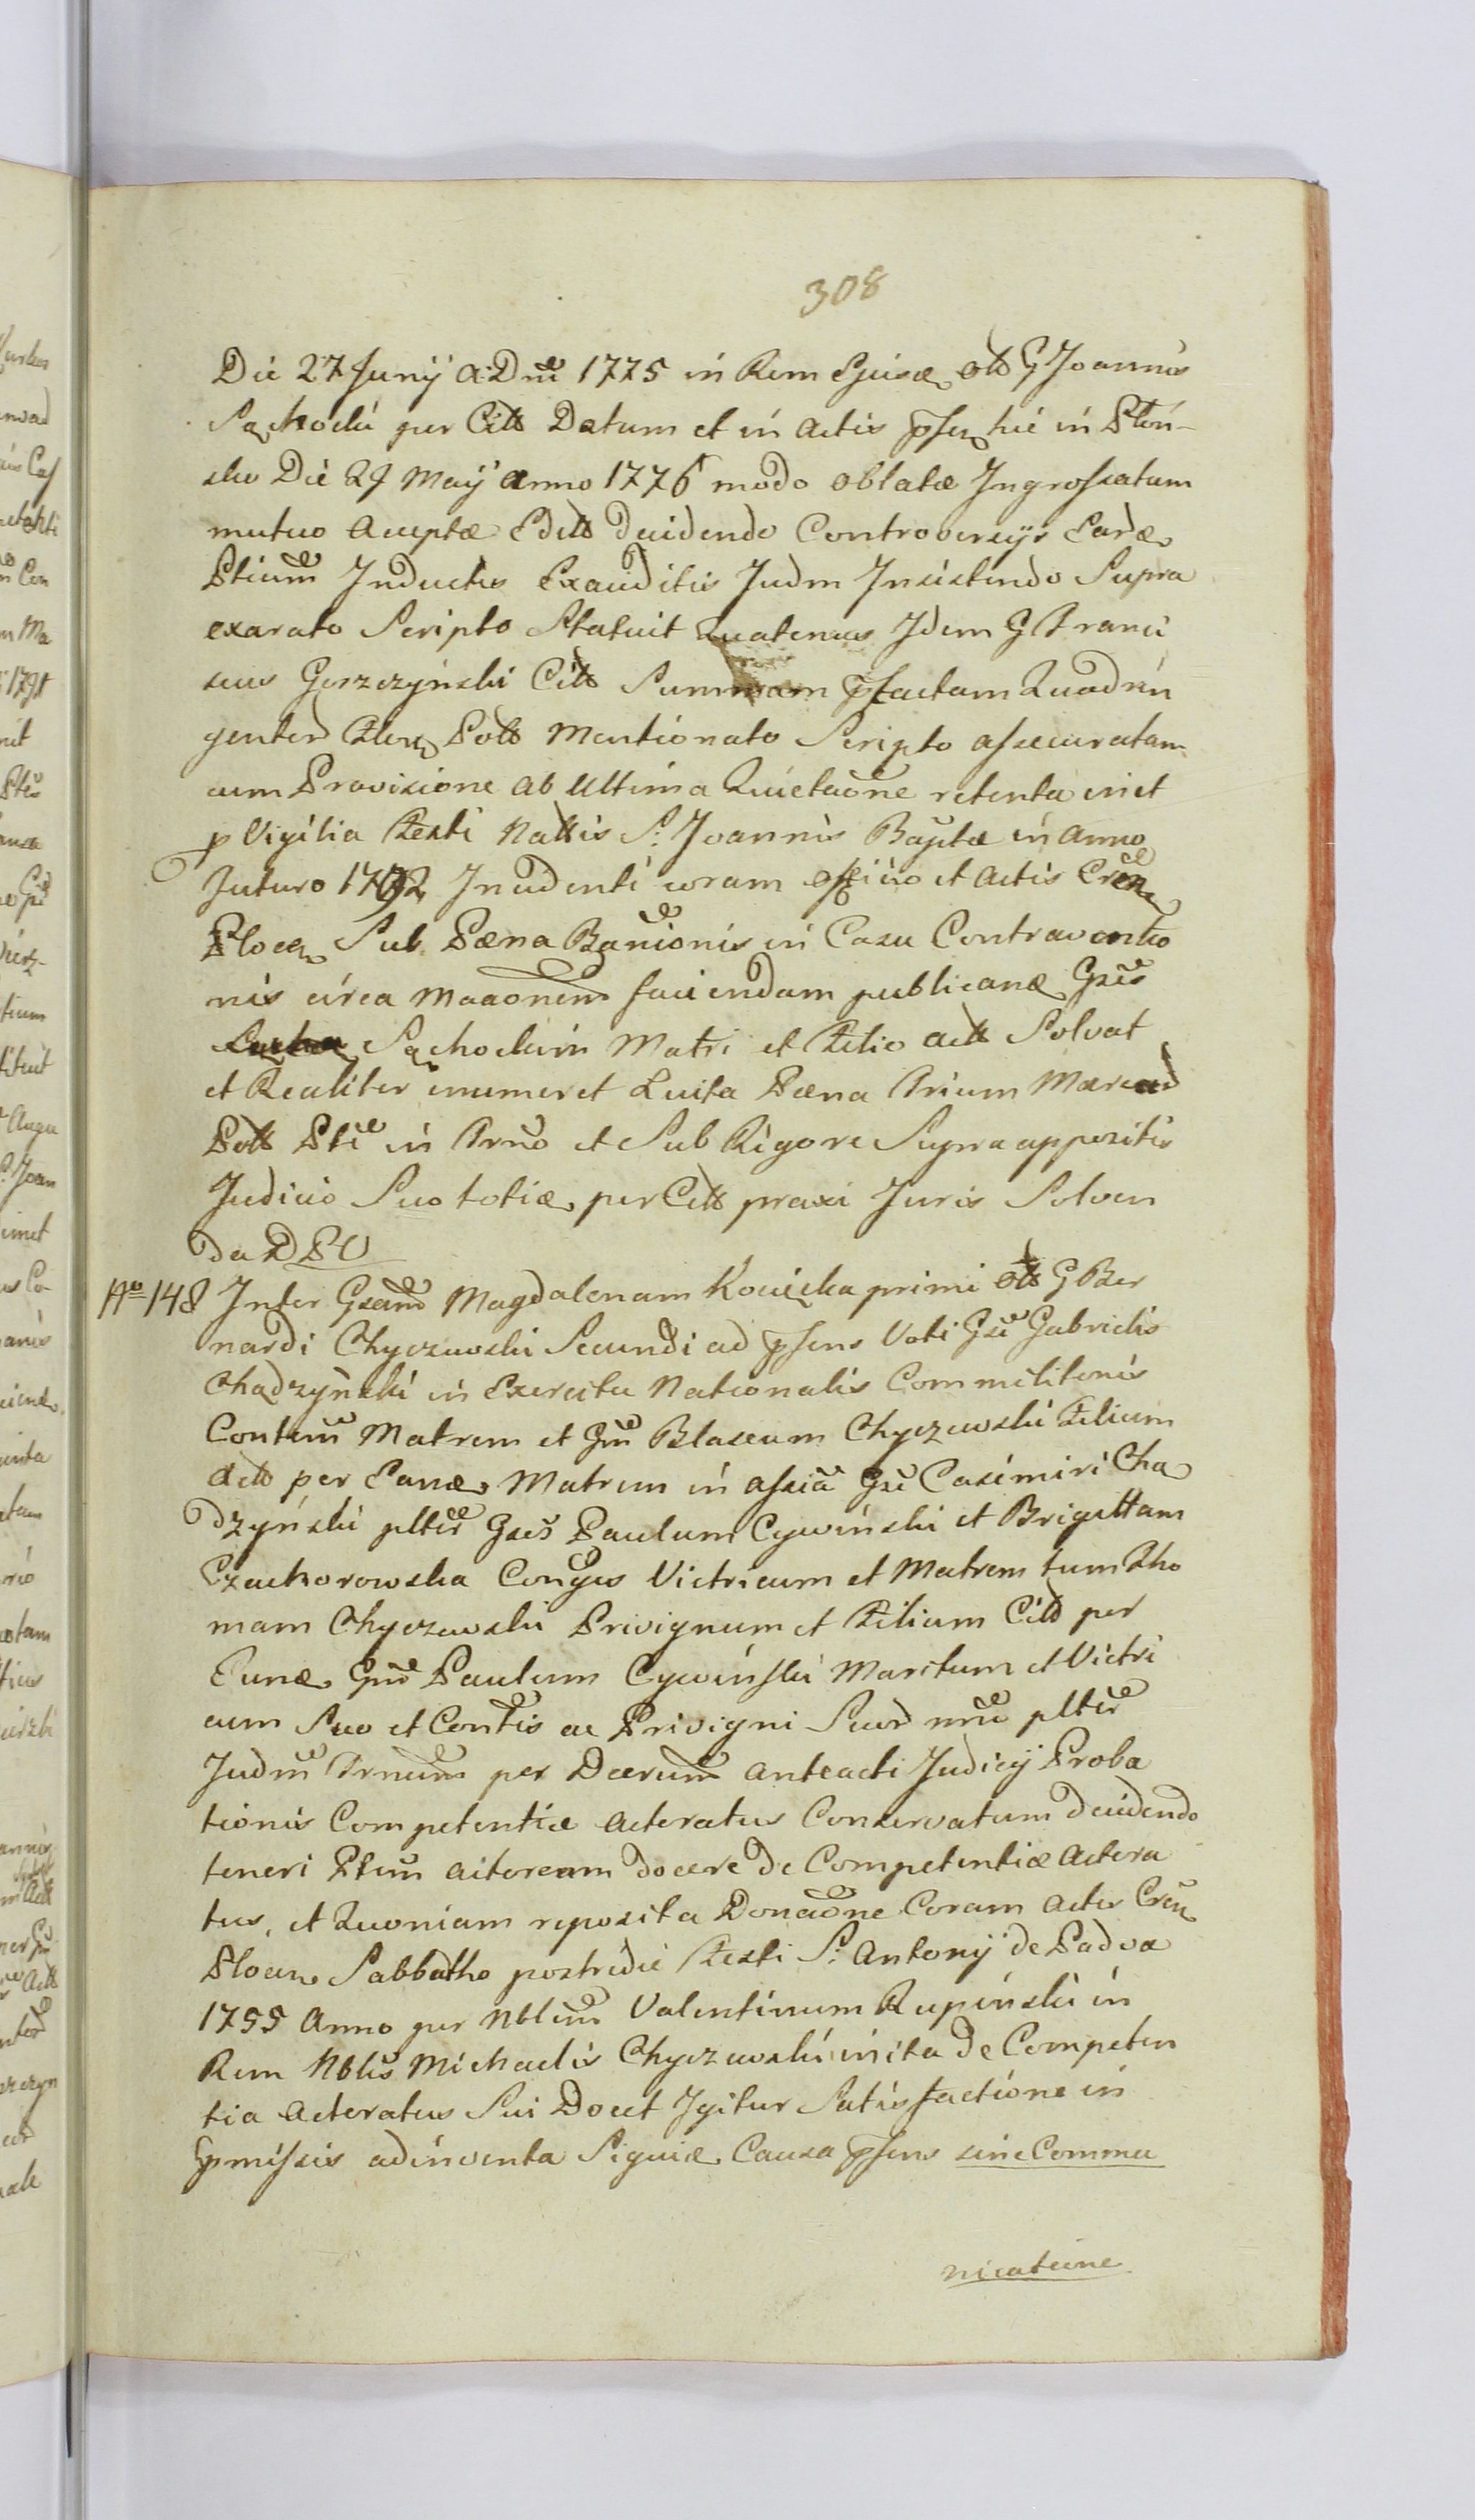 308
Die 27 Junij A: Dni 1775 in Rem Ejusd olt G Joannis
Sąchocki per Citt Datum et in Actis pnsen hic in Płoń-
sko Die 29 Maij Anno 1776 modo oblatæ Ingrossatum
mutuo acceptæ Edett Decidendo Controversijs Eard
Ptium Inductis Exauditis Judm Insistendo Supra
exarato Scripto Statuit Quatenus Idem G Franci
scus Gorzczyński Citt Summam pfactam Quadrin
genter flor Poll Mentionato Scripto assecuratam
cum Provisione ab Ultima Quietaone retenta in et
p Vigilia Festi Nattis S: Joannis Baptæ in Anno
Futuro 1792 Incidenti coram officio et Actis Cren
Plocen Sub Pæna Banionis in Casu Contraventio
nis circa Maaonem faciendam publicanæ Gsis
Sąchockim Matri et Filio Actt Solvat
et Realiter enumeret Luita Pæna Trium Marcar
Poll Pti in Trno et Sub Rigore Supra appositis
Judicio Suo toties per Citt praxi Juris Solven
da D P O
No 148 Inter Gsam Magdalenam Kocięcka primi olt G Ber
nardi Chyczewski Secundi ad pnsens Voti Gsi Gabrielis
Chądzyński in Exercitu Nationalis Commilitonis
Contem Matrem et Gm Blaseum Chyczewski Filium
Actt per Eand Matrem in assia Gsi Casimiri Chą
dzyński plter Gses Paulum Cywiński et Brigittam
Czachorowska Conges Victricum et Matrem tum Tho
mam Chyczewski Privignum et Filium Citt per
Eund Gm Paulum Cywiński Maritum et Victri
cum Suo et Contis ac Privigni Suor nne plter
Judm Trnum per Decrum anteacti Judicij Proba
tionis Competentiæ Acteratus Conservatum decidendo
teneri Ptem Actoream docere de Competentiæ Actera
tus, et Quoniam reposita Donaone Coram Actis Cren
Plocen Sabbatho postridie Festi S: Antonij de Padva
1755 Anno per Nblem Valentinum Rupiński in
Rem Nblis Michaelis Chyczewski inita de Competen
tia Acteratus Sui Docet Igitur Satisfactione in
pmissis adinventa Siquid Causa pnsens sine Commu
nicatione